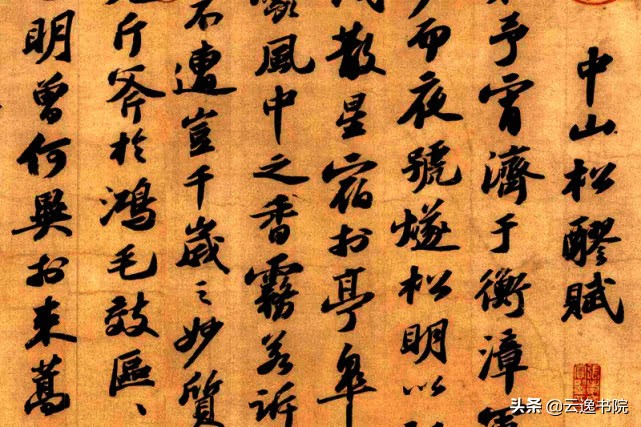 中山松醪賦
予宵濟于衡漳軍
而夜號燧松明以
散星宿於亭皋
風中之香霧若訴
不遭豈千歲之妙質
斤斧於鴻毛效區、
明曾何異於束蒿
头条 @云逸书院